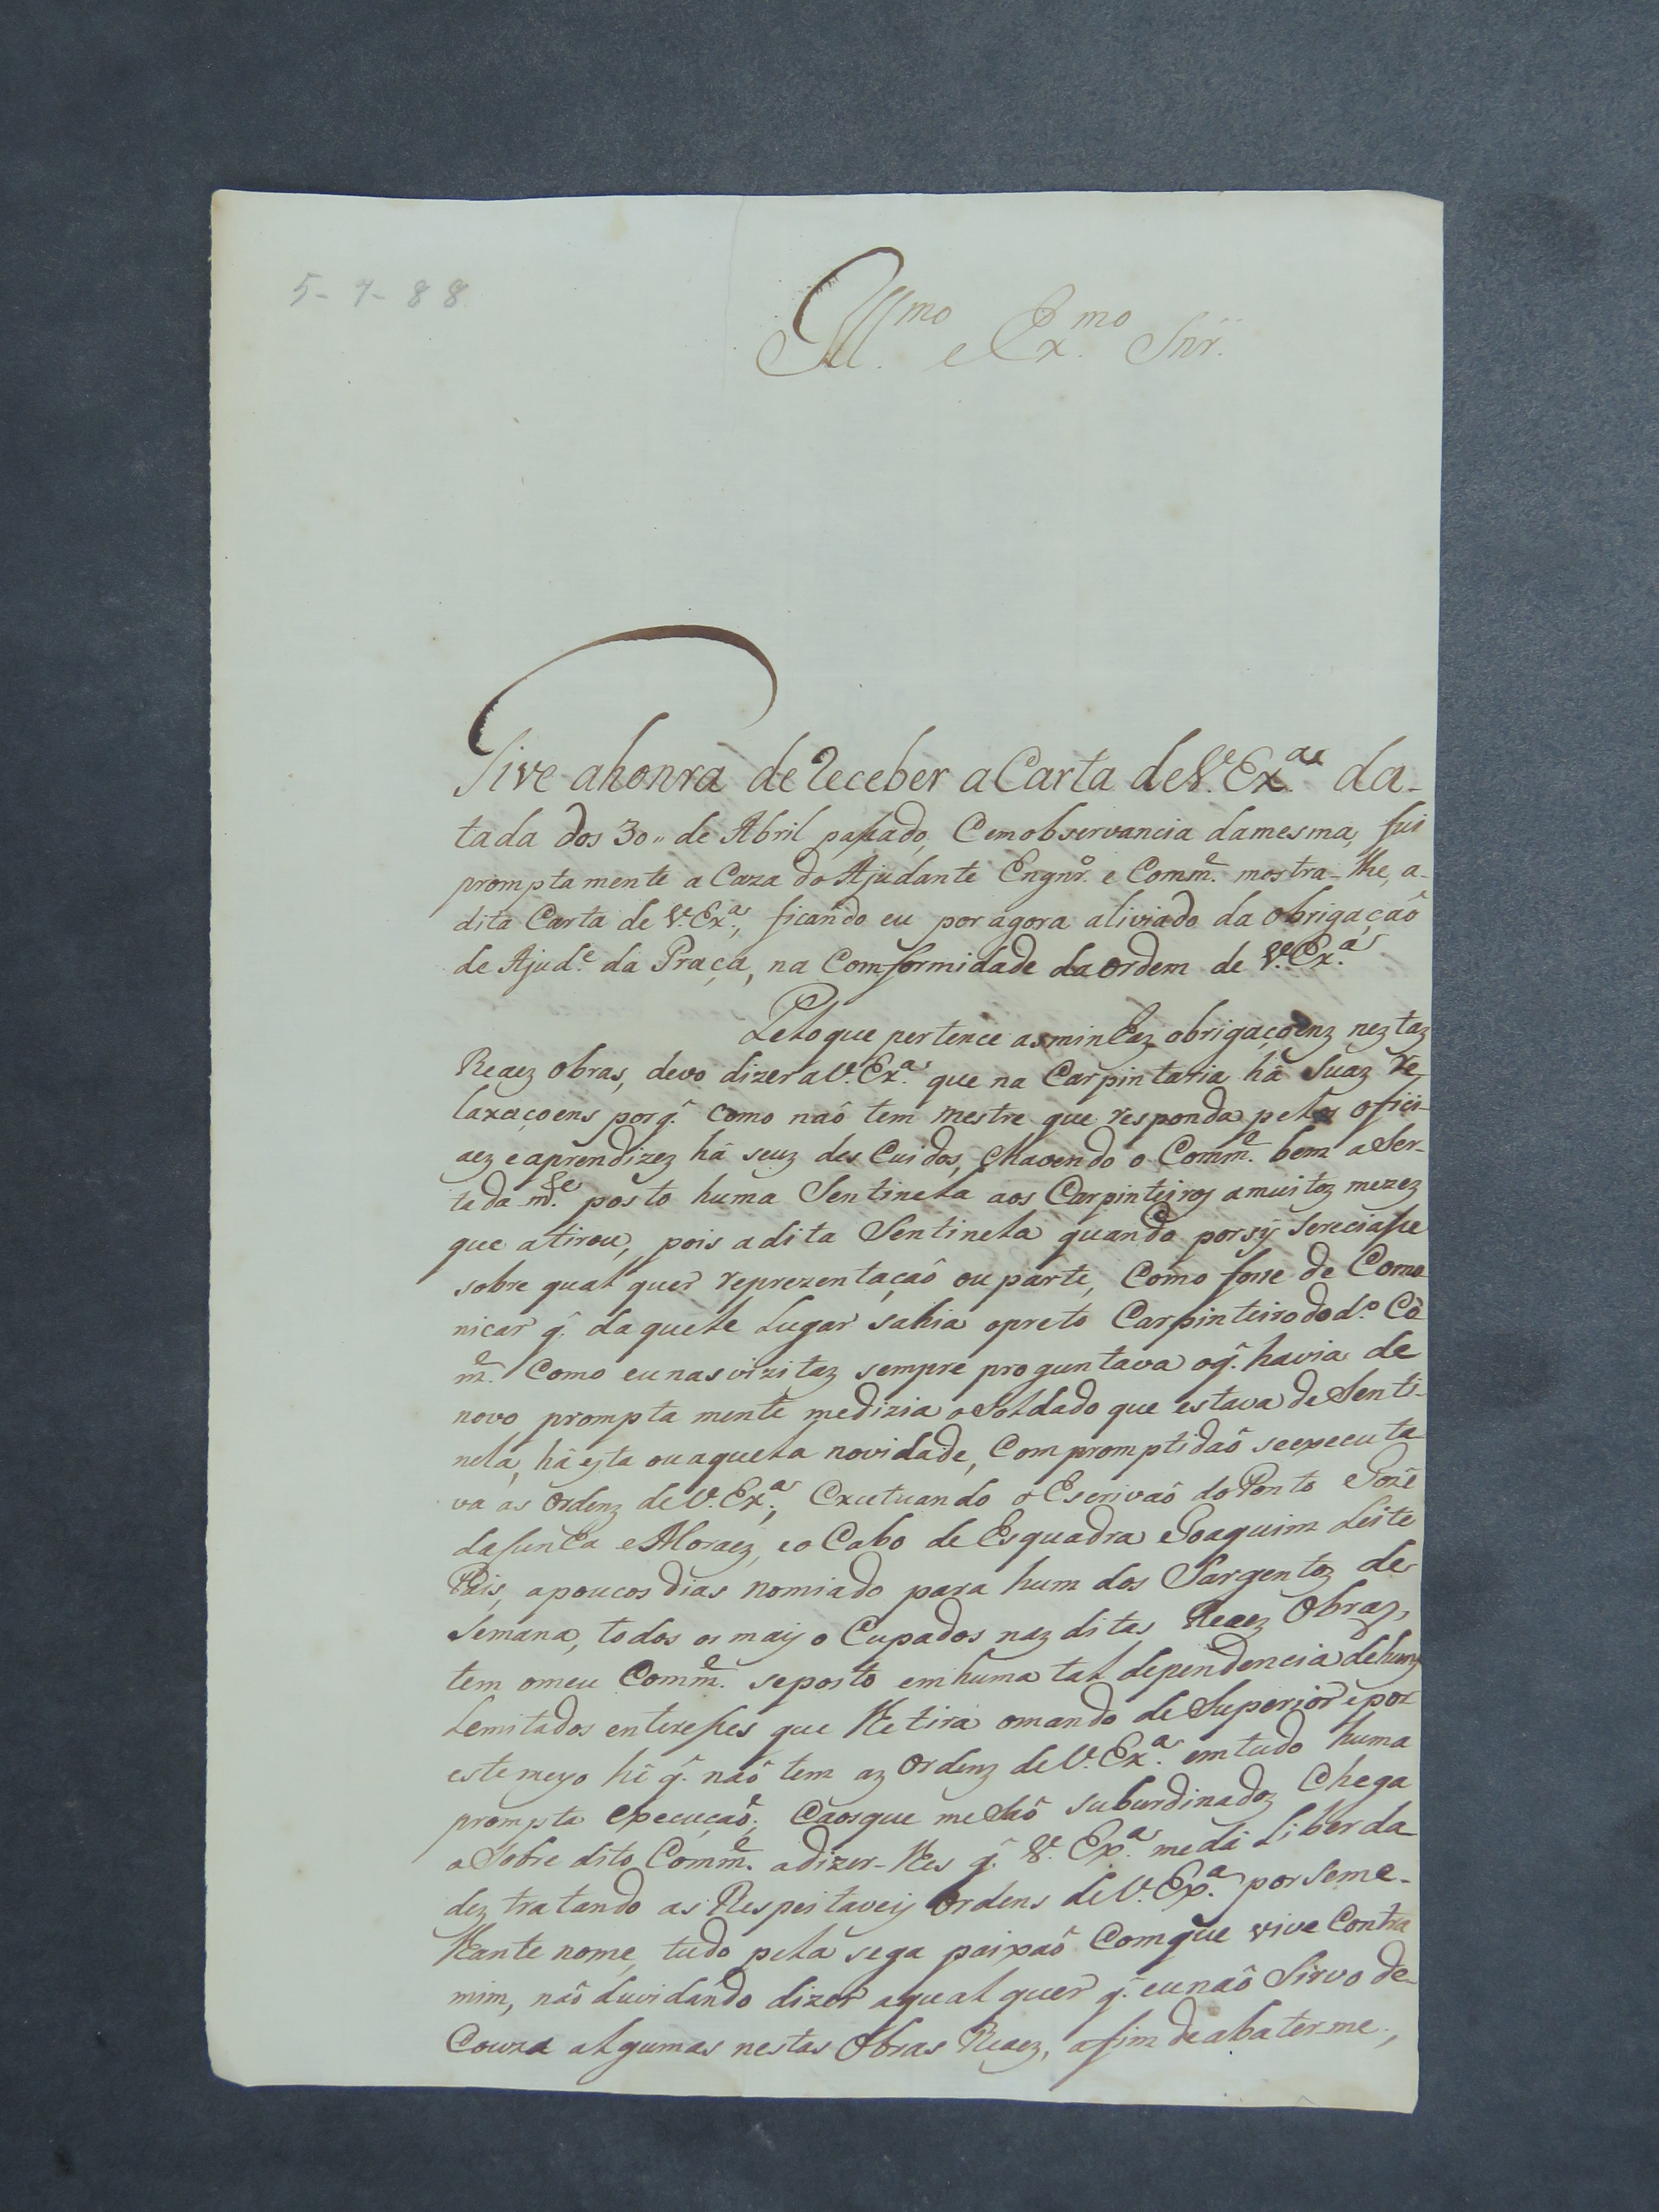 5-7-88
Ill.mo e Ex.mo Snr.
Tive ahonra de receber a Carta de V. Ex.ae da-
tada dos 30,, de Abril passado, Cemobservancia damesma, fui
promptamente a Caza do Ajudante Engnr.o e Comm.e mostra-lhe, a-
dita Carta de V. Ex.as, ficando eu por agora aliviado da obrigaçaõ
de Ajud.e da Praça, na Comformidade da ordem de V. Ex.as
Peloque pertence asminhaz obrigaçoenz neztaz
Reaez obras, devo dizer a V. Ex.as que na Carpintaria há Suaz re
laxaçoens porq.̂ como naõ tem mestre que responda pelos ofici-
aez e aprendizez há seuz des Cuidos, Mavendo o Comm.e bem aSer-
tada m.de posto huma Sentinela aos Carpinteiros amuitoz mezez
que atirou, pois adita Sentinela quando porsÿ sereciasse
sobre qual quer reprezentaçaõ ou parte, Como fosse de Comu
nicar q.̂ daquele Lugar sahia opreto Carpinteiro do d.o Cõ
m.e Como eu nas vizitaz sempre proguntava oq.̂ havia de
novo promptamente medizia o Soldado que estava de Senti-
nela, há esta ou aquela novidade, Compromptidaõ seexecuta
va as Ordenz de V. Ex.as, Excetuando o Escrivaõ do Ponto Jozê
daCunha e Moraez, eo Cabo de Esquadra Joaquim Leite
Pais, apoucos dias nomiado para hum dos Sargentoz de
Semana, todos os maij o Cupados naz ditas Reaez Obraz,
tem omeu Comm.e seposto emhuma tal dependencia dehunz
Lemitados enteresses que lhe tira omando de Superior epor
estemeyo hê q.̂ naõ tem az Ordenz de V. Ex.as emtudo huma
prompta execuçaõ, Eaosque meSaõ suburdinadoz Chega
o Sobre dito Comm.e adizer-lhes q.̂ V. Ex.as medá Liberda
dez tratando as Respeitaveij Ordens de V. Ex.as por Seme-
lhante nome, tudo pela sega paixaõ Comque vive Contra
mim, naõ duvidando dizer aqual quer q.̂ eunaõ Sirvo de-
Couza algumas nestas Obras Reaez, afim deabaterme.,